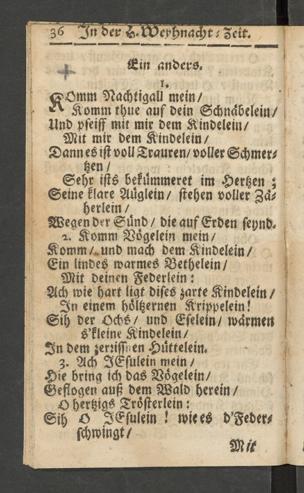 36 In der H. Weyhnacht-Zeit.
Ein anders.
1.
KOmm Nachtigall mein/
Komm thue auf dein Schnäbelein/
Und pfeiff mit mir dem Kindelein/
Mit mir dem Kindelein/
Dann es ist voll Trauren/ voller Schmer-
tzen/
Sehr ists bekümmeret im Hertzen;
Seine klare Aüglein/ stehen voller Zä-
herlein/
Wegen der Sünd/ die auf Erden seynd.
2. Komm Vögelein mein/
Komm/ und mach dem Kindelein/
Ein lindes warmes Bethelein/
Mit deinen Federlein:
Ach wie hart ligt dises zarte Kindelein/
In einem höltzernen Krippelein!
Sih der Ochs/ und Eselein/ wärmen
s'kleine Kindelein/
In dem zerrissnen Hüttelein.
3. Ach JEsulein mein/
Hie bring ich das Vögelein/
Geflogen auß dem Wald herein/
O hertzigs Trösterlein:
Sih O JEsulein! wie es d'Feder-
schwingt/
Mit